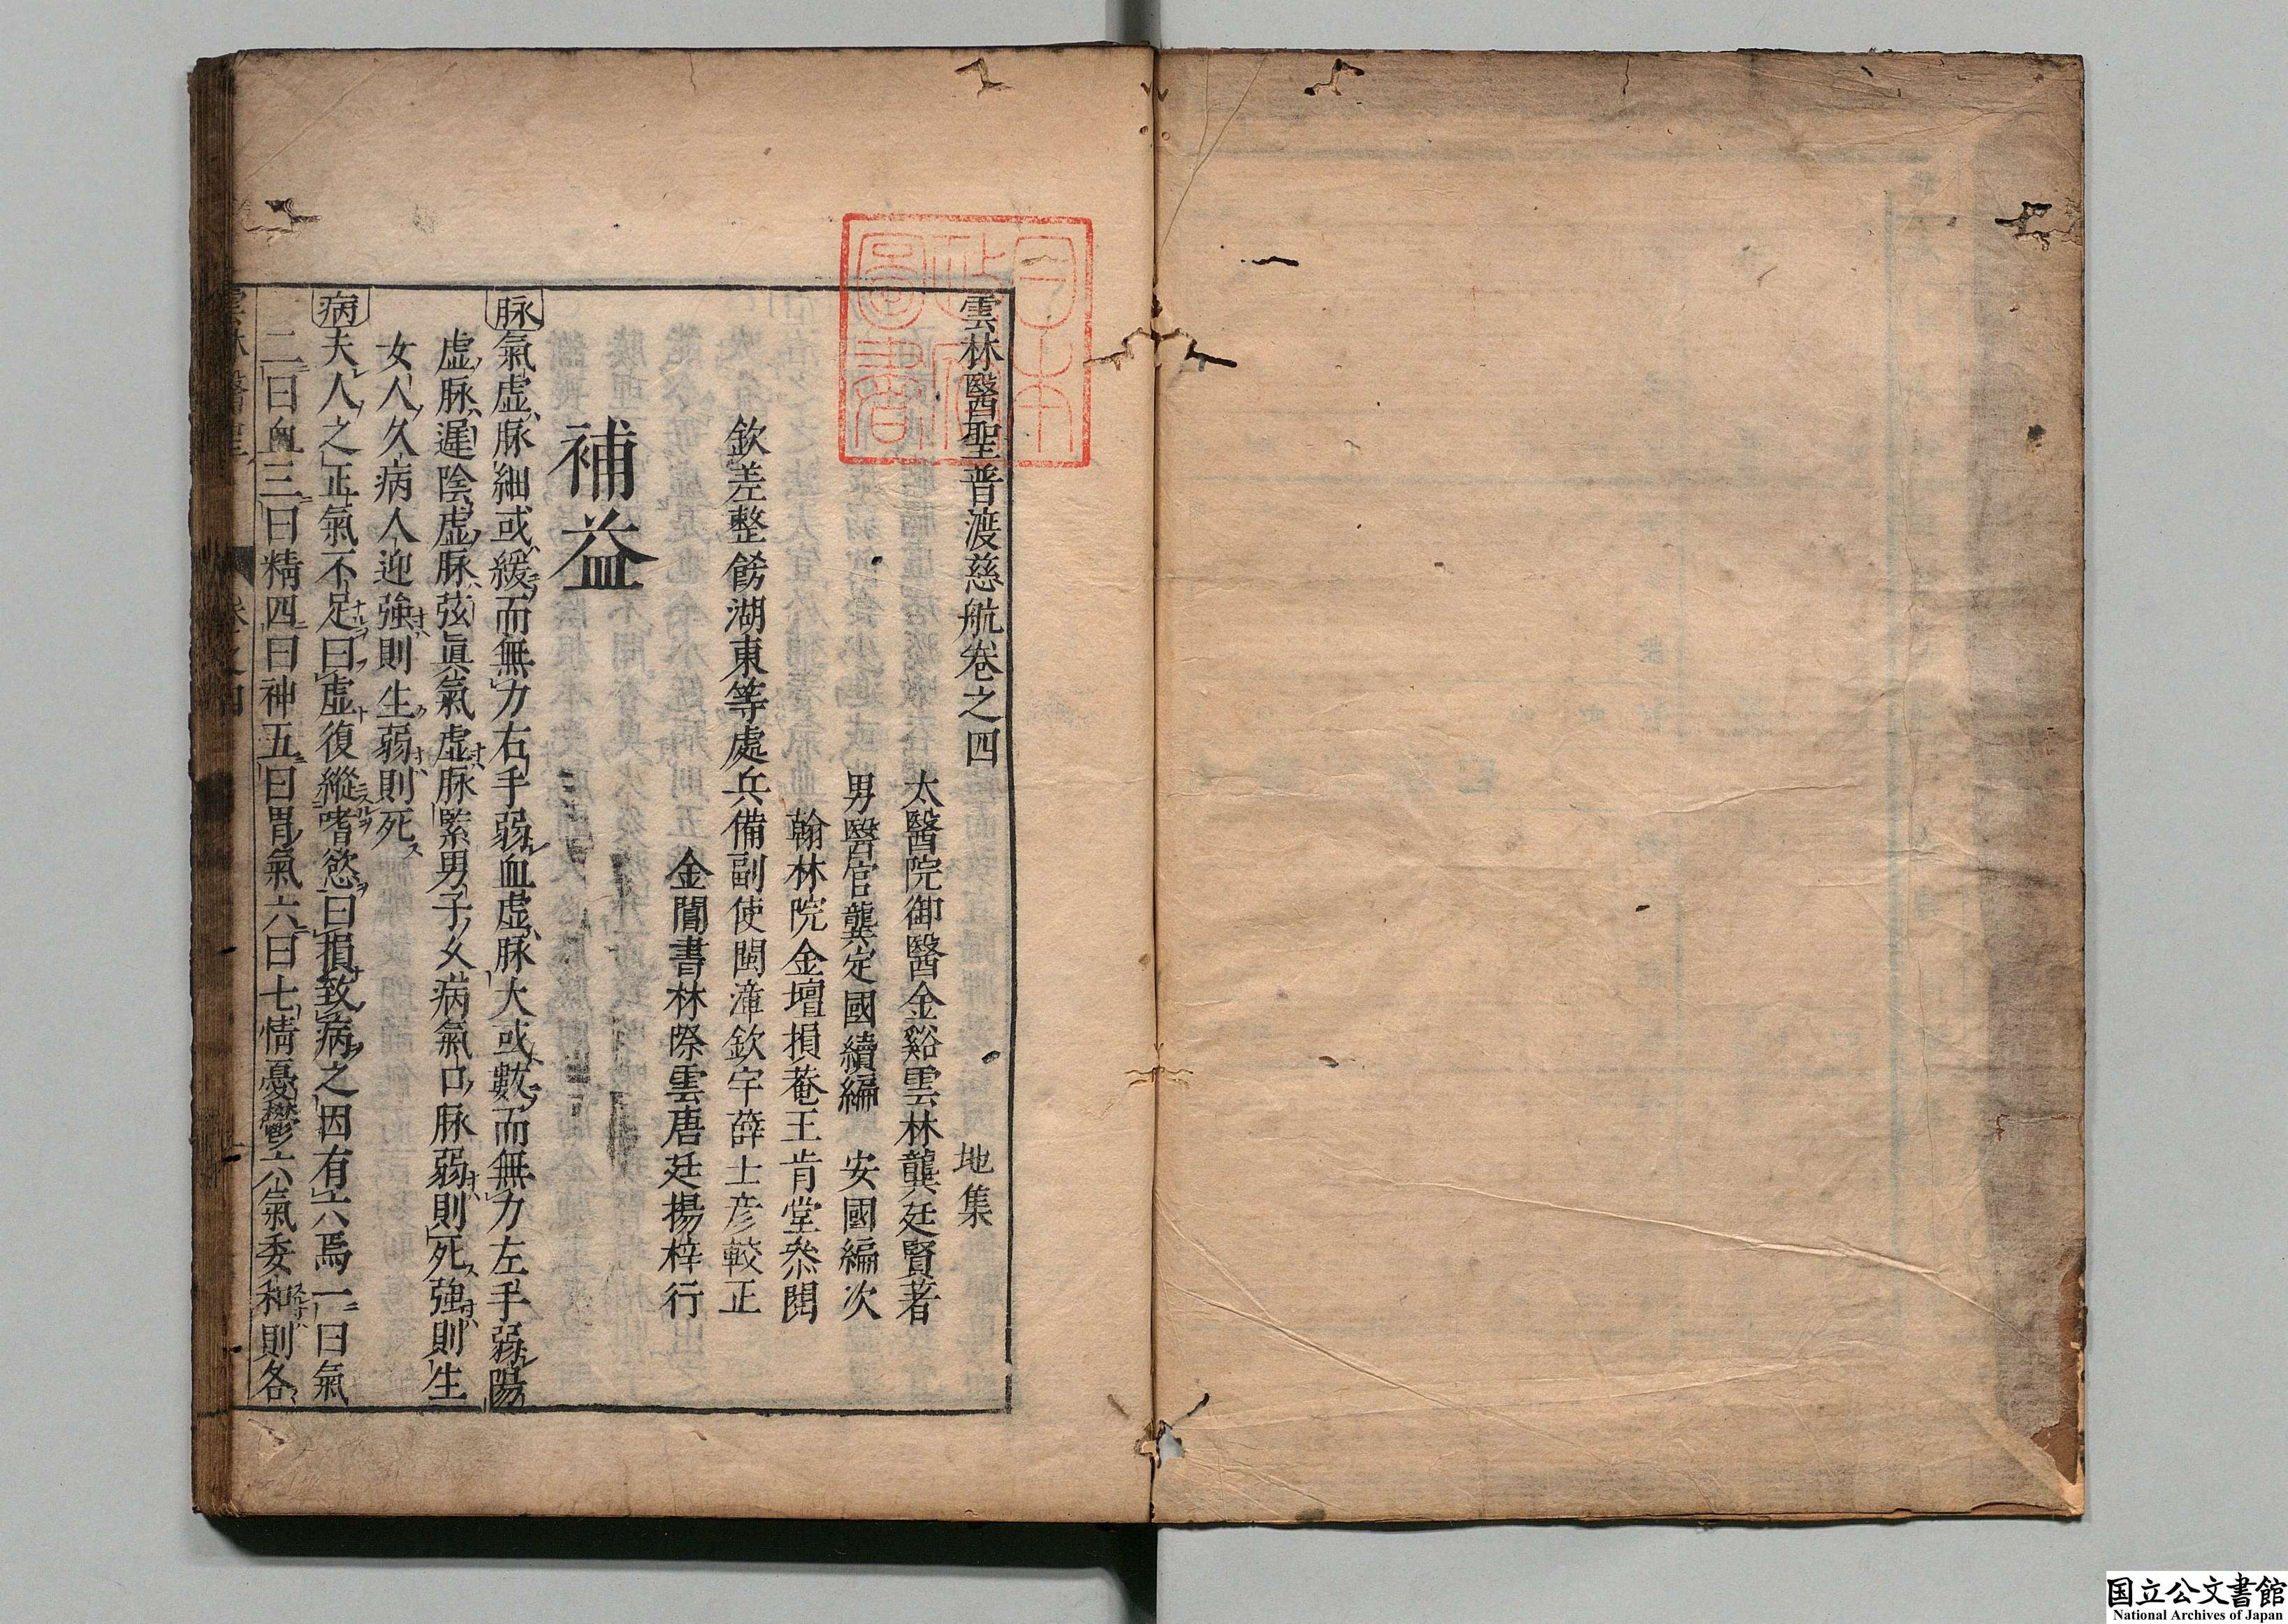 雲林醫聖普渡慈航卷之四　地集
太醫院御醫金谿雲林龔廷賢著
男醫官龔定國續編　安國編次
翰林院金壇損菴王肯堂叅閱
欽差整飭湖東等處兵備副使閩漳欽宇薛士彦較正
金閶書林際雲唐廷揚梓行
補益
脉氣虛脉細或緩而無力右手弱血虛脉大或數而無力左手弱陽
虛脉遲陰虛脉弦眞氣虛脉緊男子久病氣口脉弱則死強則生
女人久病人迎強則生弱則死
病夫人之正氣不足曰虛復縱嗜慾曰損致病之因有六焉一曰氣
二曰血三曰精四曰神五曰胃氣六曰七情憂鬱六氣委和則各
卷之四
日本政府圖書
国立公文書館
National Archives of Japan